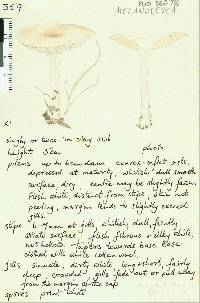 359
PDD 56278
MELANOLEUCA
X1
singly or twos in clay soil
height 5cm photo
pileus up to 6cm diam convex infl ex,
depressed at maturity, whitish dull smooth
surface dry. centre may be slightly fawn.
flesh white, distinct from stipe, skin not
peeling, margin tends to slightly exceed
gills.
stipe 6-7mm at gills, whitish dull, faintly
striate surface, flesh fibrous silky white,
not hollow. Tapers towards base. Base
clothed with white cotton wool.
gills sinuate, dirty white, thin, short, fairly
deep crowded. gills fade out or pull away
from the margin of the cap
spores print white